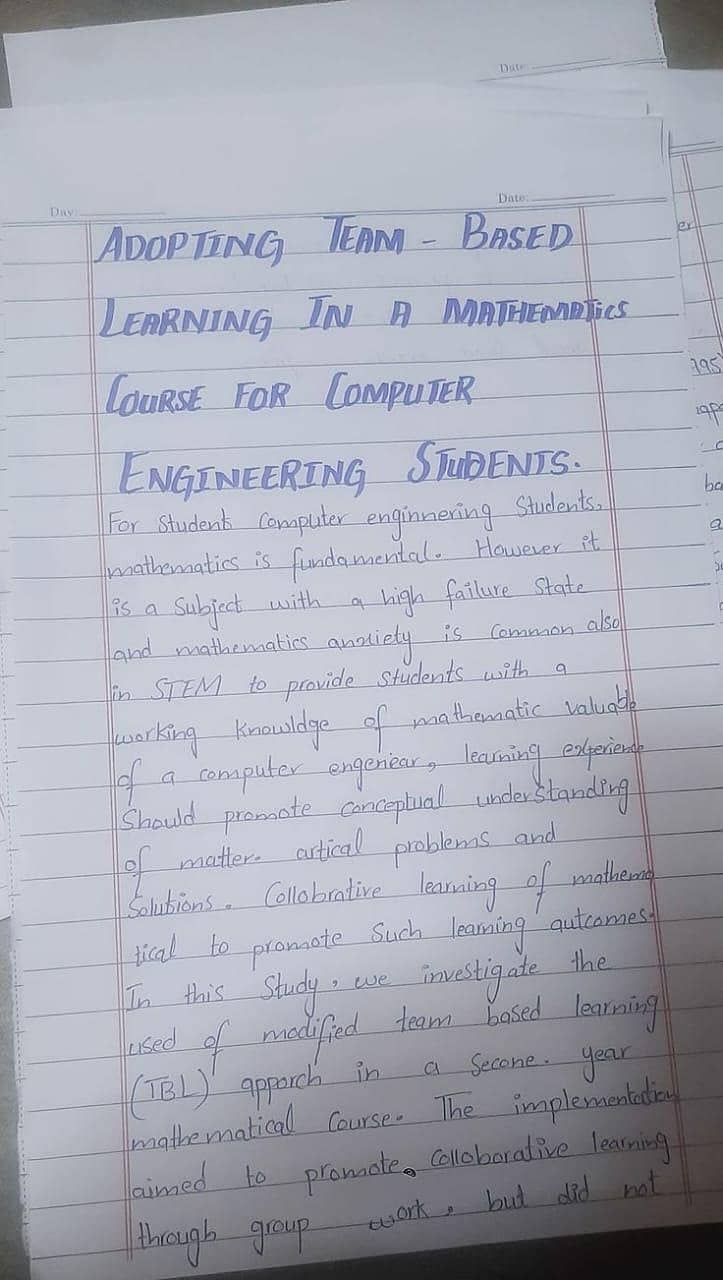 Date:
Day:
Date:
ADOPTING TEAM - BASED
LEARNING IN A MATHEMATICS
COURSE FOR COMPUTER
ENGINEERING STUDENTS.
For Student Computer enginnering Students,
mathematics is fundamental. However it
is a Subject with a high failure State
and mathematics anxiety is Common also
in STEM to provide students with a
working Knowldge of mathematic valuable
of a computer engeniear, learning experience
Should promote conceptual understanding
of matter. artical problems and
Solutions. Collobrative learning of mathema
tical to promote Such learning outcomes.
In this Study, we investigate the
used of modified team based learning
(TBL) apporch in a Secone. year
mathematical Course. The implementation
aimed to promote. Colloborative learning
through group work, but did not
er
195